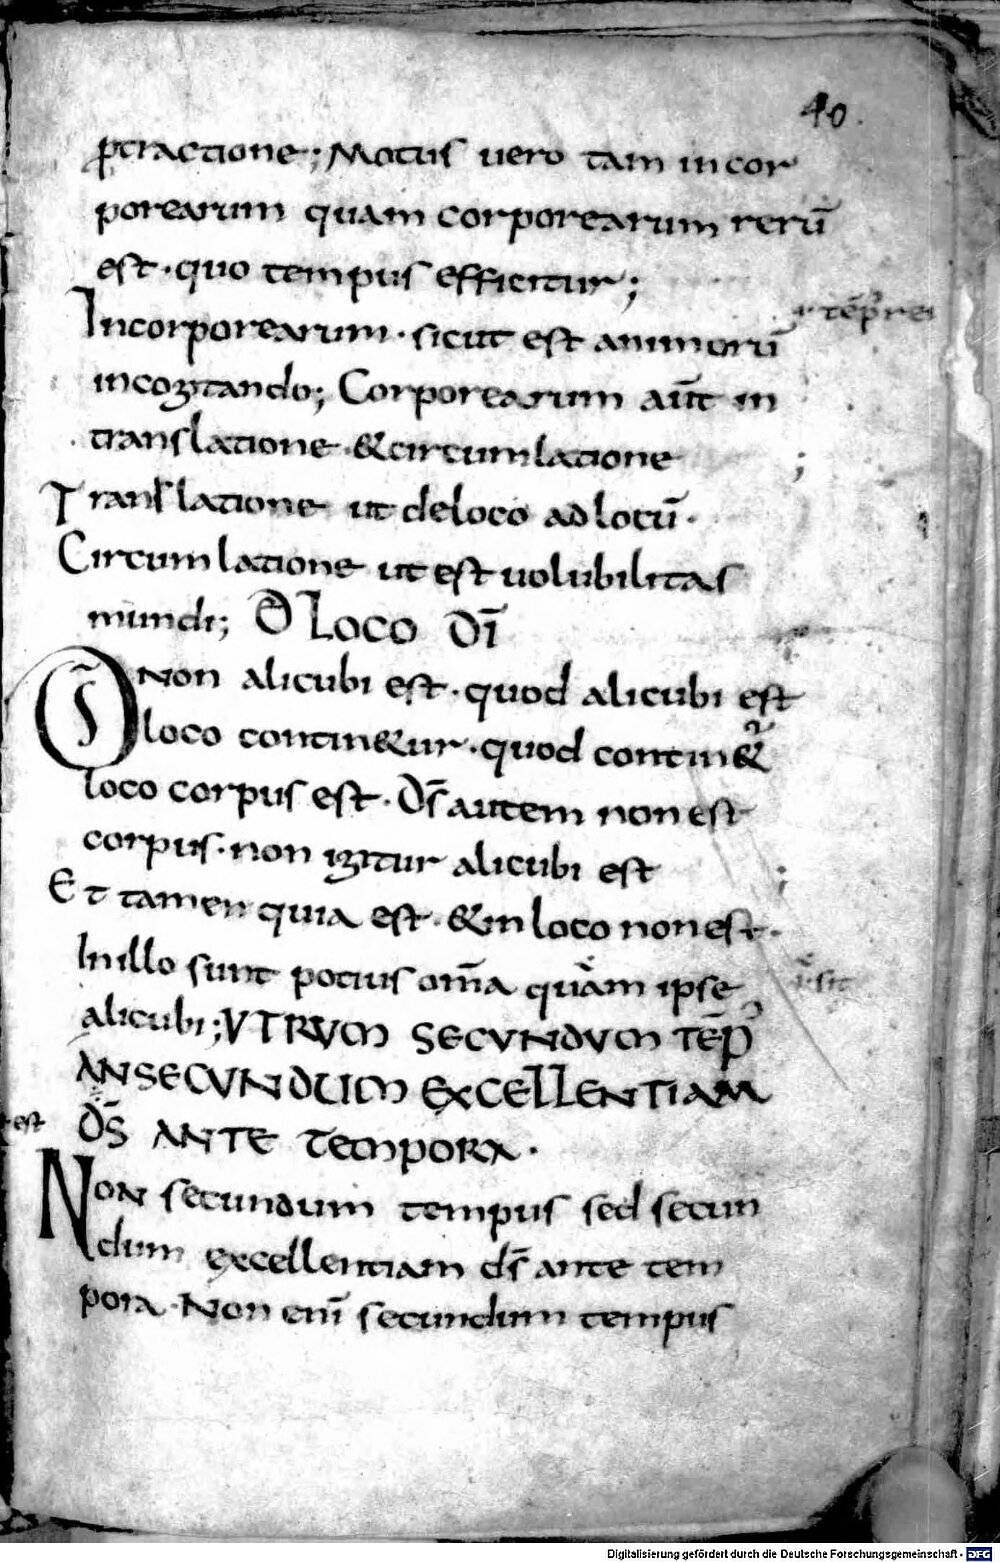 40.
ptractione; Motus uero tam incor
porearum quam corporearum rerū
est· quo tempus efficitur;
Incorporearum· sicut est animorū
incogitando; Corporearum aūt in
translatione &circumlatione
Translatione ut deloco adlocū·
Circumlatione ut est uolubilitas
mundi; D LOCO DĪ
D̄S NON alicubi est· quod alicubi est
loco contin&ur· quod contin&
loco corpus est· D̄s autem non est
corpus· non igitur alicubi est
Et tamen quia est· &in loco non est·
In illo sunt potius om̄a quam ipse
alicubi; VTRVM SECVNDVM TĒP
AN SECVNDUM EXCELLENTIAM
est D̄S ANTE TEMPORA·
NON secundum tempus sed secun
dum excellentiam d̄s ante tem
pora· Non enī secundum tempus
Digitalisierung gefördert durch die Deutsche Forschungsgemeinschaft - DFG